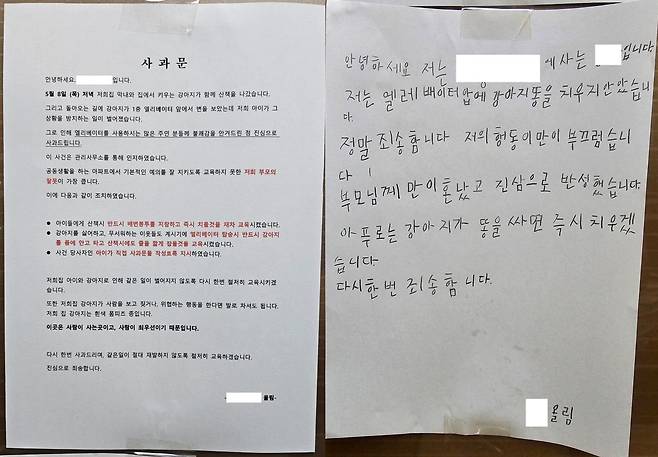 사 과 문
안녕하세요. 입니다.
5월 8일 (목) 저녁 저희집 막내와 집에서 키우는 강아지가 함께 산책을 나갔습니다.
그리고 돌아오는 길에 강아지가 1층 엘리베이터 앞에서 변을 보았는데 저희 아이가 그
상황을 방치하는 일이 벌어졌습니다.
그로 인해 엘리베이터를 사용하시는 많은 주민 분들께 불쾌감을 안겨드린 점 진심으로
사과드립니다.
이 사건은 관리사무소를 통해 인지하였습니다.
공동생활을 하는 아파트에서 기본적인 예의를 잘 지키도록 교육하지 못한 저희 부모의
잘못이 가장 큽니다.
이에 다음과 같이 조치하였습니다.
● 아이들에게 산책시 반드시 배변봉투를 지참하고 즉시 치울것을 재차 교육시켰습니다.
● 강아지를 싫어하고, 무서워하는 이웃들도 계시기에 엘리베이터 탑승시 반드시 강아지
를 품에 안고 타고 산책시에도 줄을 짧게 잡을것을 교육시켰습니다.
● 사건 당사자인 아이가 직접 사과문을 작성토록 지시하였습니다.
저희집 아이와 강아지로 인해 같은 일이 벌어지지 않도록 다시 한번 철저히 교육시키겠
습니다.
또한 저희집 강아지가 사람을 보고 짖거나, 위협하는 행동을 한다면 발로 차셔도 됩니다.
저희 집 강아지는 흰색 폼피츠 종입니다.
이곳은 사람이 사는곳이고, 사람이 최우선이기 때문입니다.
다시 한번 사과드리며, 같은일이 절대 재발하지 않도록 철저히 교육하겠습니다.
진심으로 죄송합니다.
- 올림-
안녕하세요 저는 에사는 입니다.
저는 엘레베이터 앞에 강아지똥을 치우지안았습니
다.
정말 죄송합니다 저의 행동이만이 부끄럽습니
다
부모님께 만이혼났고 진심으로 반성했습니다.
아푸로는 강아지가 똥을 싸면 즉시 치우겠
습니다
다시한번 죄송합니다.
올림